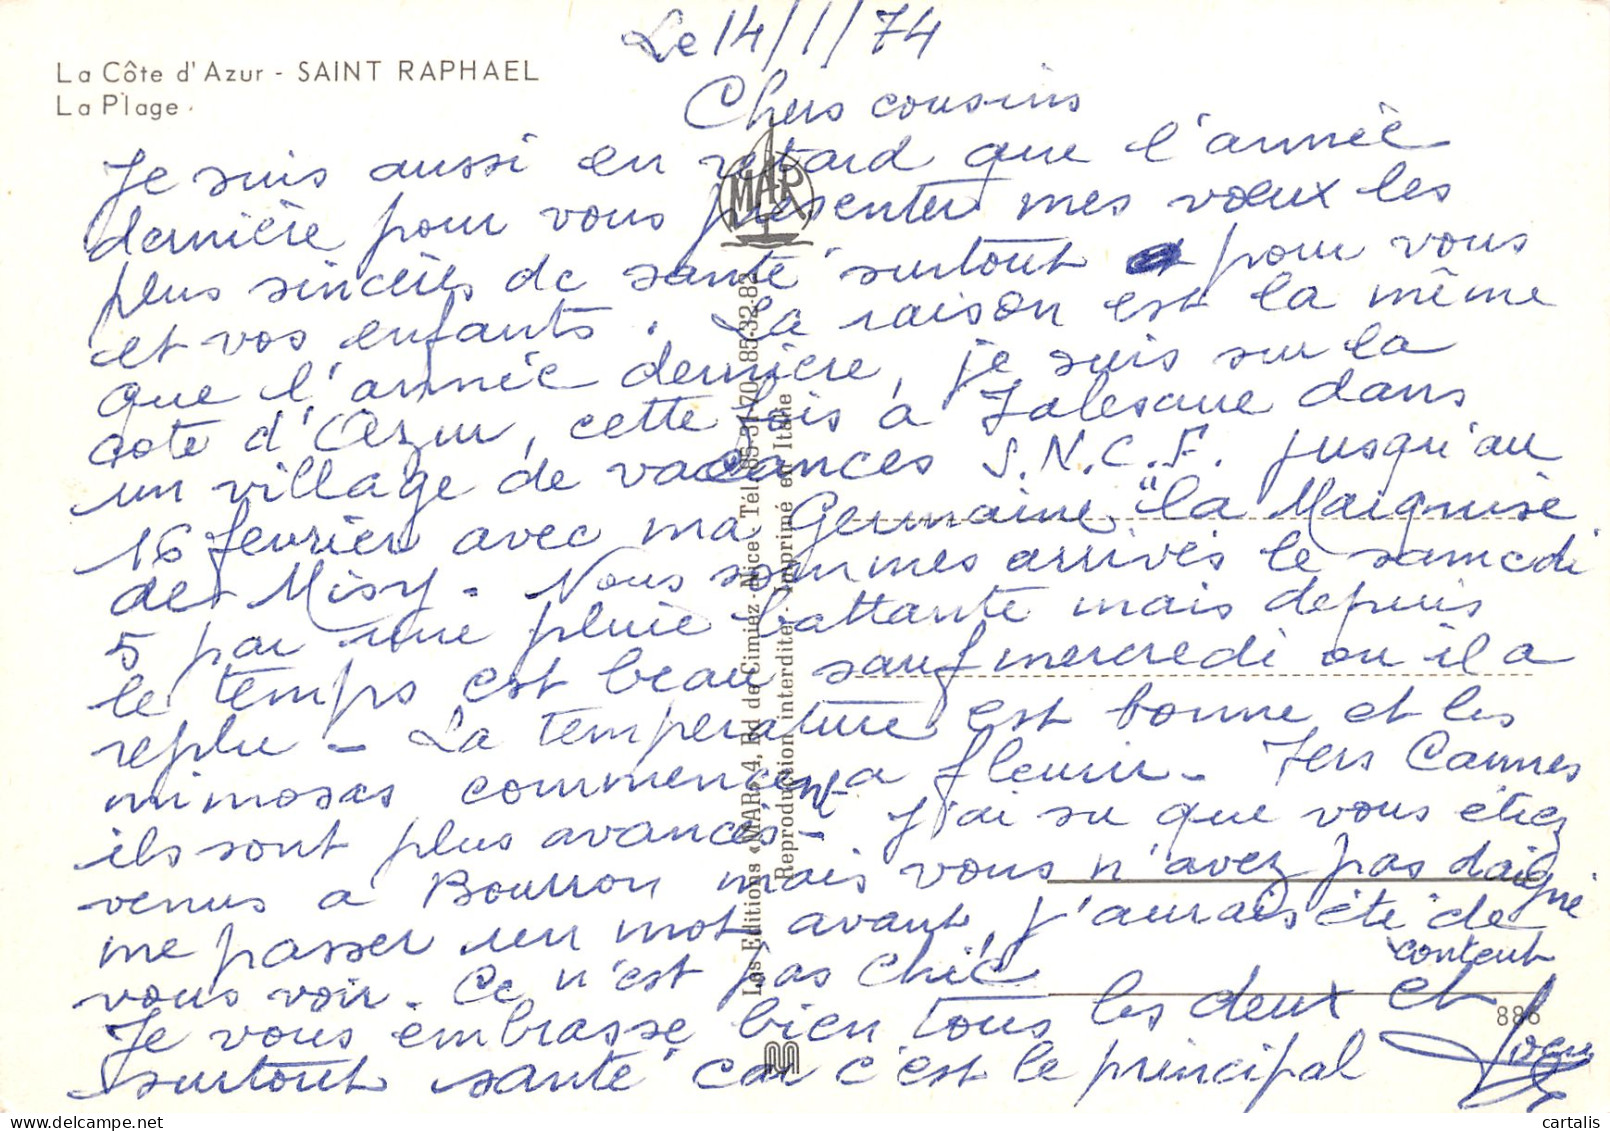 La Côte d'Azur - SAINT RAPHAEL
La Plage
Le 14/1/74
Chers cousins
Je suis aussi en retard que l'année
dernière pour vous présenter mes vœux les
plus sincères de santé surtout pour vous
et vos enfants. La raison est la même
que l'année dernière, je suis sur la
cote d'Azur, cette fois à dans
un village de vacances S.N.C.F. jusqu'au
16 fevrier avec ma Germaine "la Marquise
de Misy. Nous sommes arrivés le samedi
5 par une pluie battante mais depuis
le temps est beau sauf mercredi ou il a
replu - La température est bonne et les
mimosas commencent a fleurir - Vers Cannes
ils sont plus avancés - J'ai su que vous étiez
venus à Bourron mais vous n'avez pas daigné
me passer un mot avant, j'aurais été de
content
vous voir. Ce n'est pas chic
Je vous embrasse bien tous les deux et
surtout santé car c'est le principal
MAR
Les Editions «MAR» 4, Bd de Cimiez - Nice - Tél. 85-31-70 85-32-82
Reproduction interdite - Imprimé en Italie
886
cartalis